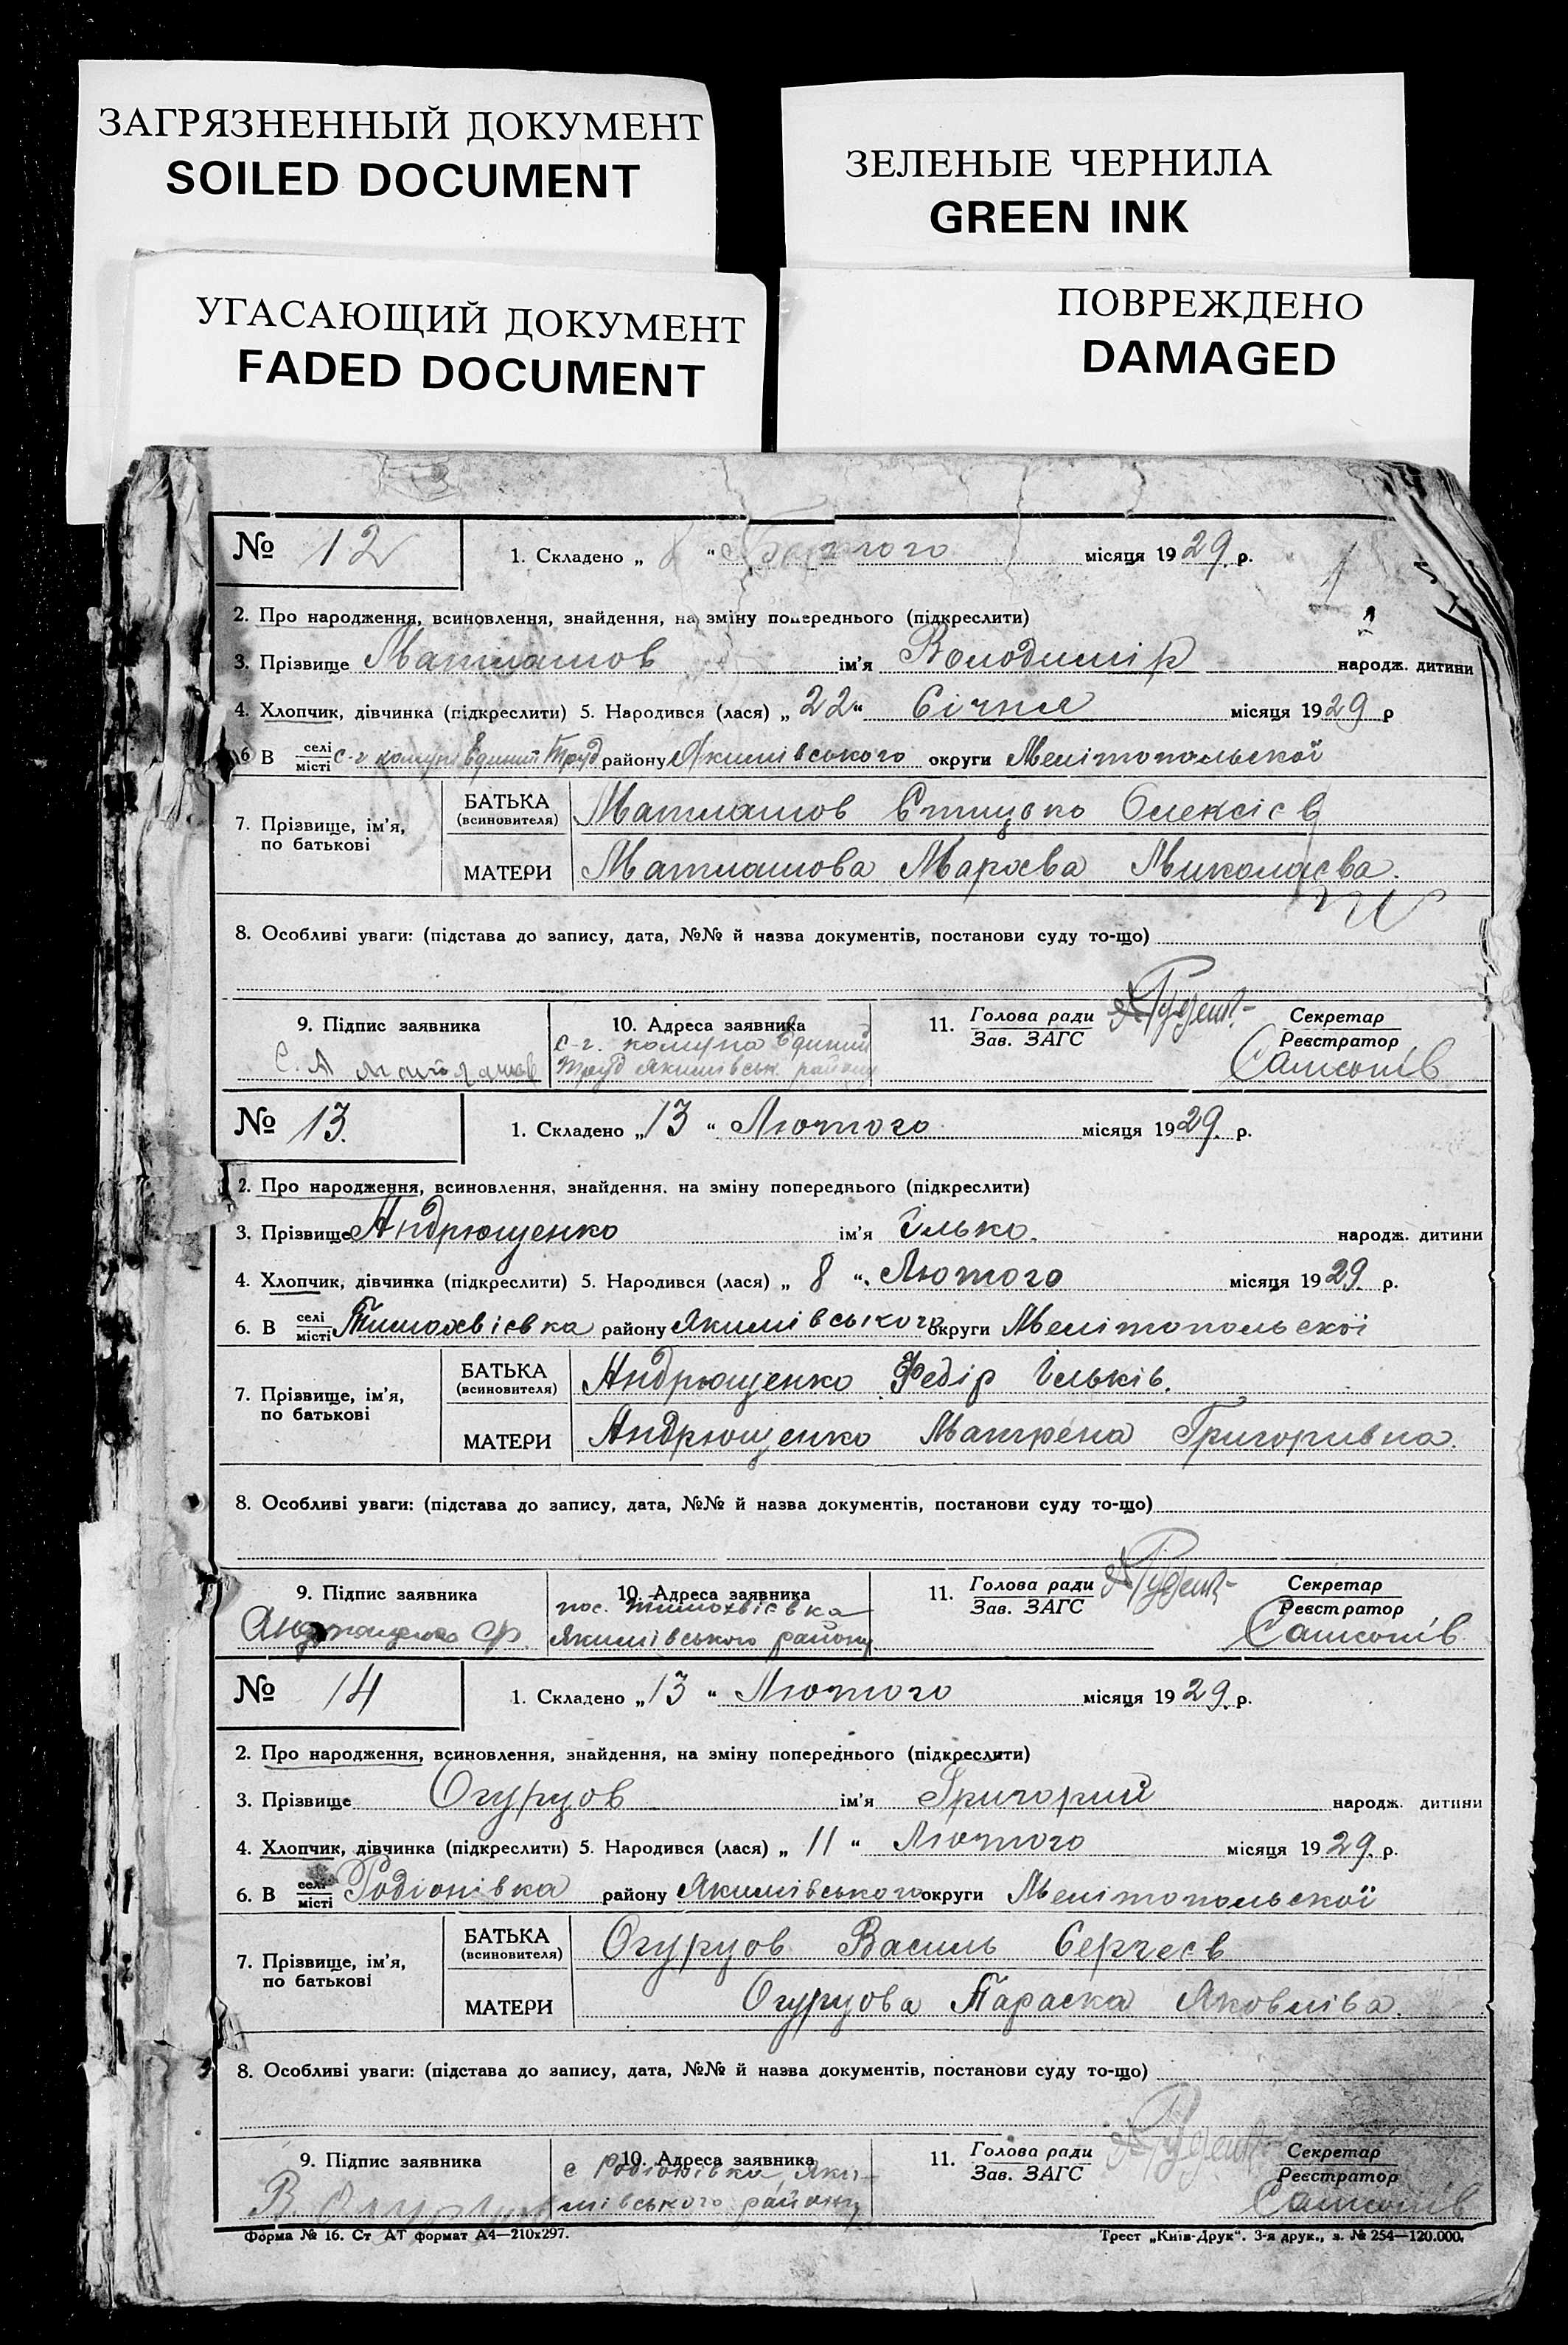 ЗАГРЯЗНЕННЫЙ ДОКУМЕНТ
SOILED DOCUMENT
ЗЕЛЕНЫЕ ЧЕРНИЛА
GREEN INK
УГАСАЮЩИЙ ДОКУМЕНТ
FADED DOCUMENT
ПОВРЕЖДЕНО
DAMAGED
№ 12
1. Складено „ 8 “ Лютого місяця 1929 р.
2. Про народження, всиновлення, знайдення, на зміну попереднього (підкреслити)
3. Прізвище Матлашов ім'я Володимір народж. дитини
4. Хлопчик, дівчинка (підкреслити) 5. Народився (лася) „ 22 “ Січня місяця 1929 р
6 В селі місті с-г комуні Єдиний Труд району Якимівського округи Мелітопольскої
7. Прізвище, ім'я, по батькові
БАТЬКА (всиновителя) Матлашов Олексієв
МАТЕРИ Матлашова Миколаєва.
8. Особливі уваги: (підстава до запису, дата, №№ й назва документів, постанови суду то-що)
9. Підпис заявника
С. А
10. Адреса заявника
с-г. комуна Єдиний
Труд Якимівськ. району
11. Голова ради
Зав. ЗАГС
Секретар
Реєстратор
Самсонів
№ 13.
1. Складено „ 13 “ Лютого місяця 1929. р.
2. Про народження, всиновлення, знайдення, на зміну попереднього (підкреслити)
3. Прізвище Андрющенко ім'я Ілько. народж. дитини
4. Хлопчик, дівчинка (підкреслити) 5. Народився (лася) „ 8 “ Лютого місяця 1929. р.
6. В селі місті Тимохвієвка району Якимівського округи Мелітопольскої
7. Прізвище, ім'я, по батькові
БАТЬКА (всиновителя) Андрющенко Федір Ільків.
МАТЕРИ Андрющенко Матрена Григоривна.
8. Особливі уваги: (підстава до запису, дата, №№ й назва документів, постанови суду то-що)
9. Підпис заявника
Андрющенко Ф.
10. Адреса заявника
пос. Тимохвієвка
Якимівського району
11. Голова ради
Зав. ЗАГС
Секретар
Реєстратор
Самсонів
№ 14
1. Складено „ 13 “ Лютого місяця 1929. р.
2. Про народження, всиновлення, знайдення, на зміну попереднього (підкреслити)
3. Прізвище Огурцов ім'я Григорий народж. дитини
4. Хлопчик, дівчинка (підкреслити) 5. Народився (лася) „ 11 “ Лютого місяця 1929. р.
6. В селі місті Родіонівка району Якимівського округи Мелітопольскої
7. Прізвище, ім'я, по батькові
БАТЬКА (всиновителя) Огурцов Василь Сергеєв
МАТЕРИ Огурцова Параска Яковліва.
8. Особливі уваги: (підстава до запису, дата, №№ й назва документів, постанови суду то-що)
9. Підпис заявника
В. Огурцов
10. Адреса заявника
с Родіонівка, Яки-
мівського району
11. Голова ради
Зав. ЗАГС
Секретар
Реєстратор
Самсонів
Форма № 16. Ст АТ формат А4—210х297.
Трест „Київ-Друк“. 3-я друк., з. № 254—120.000.